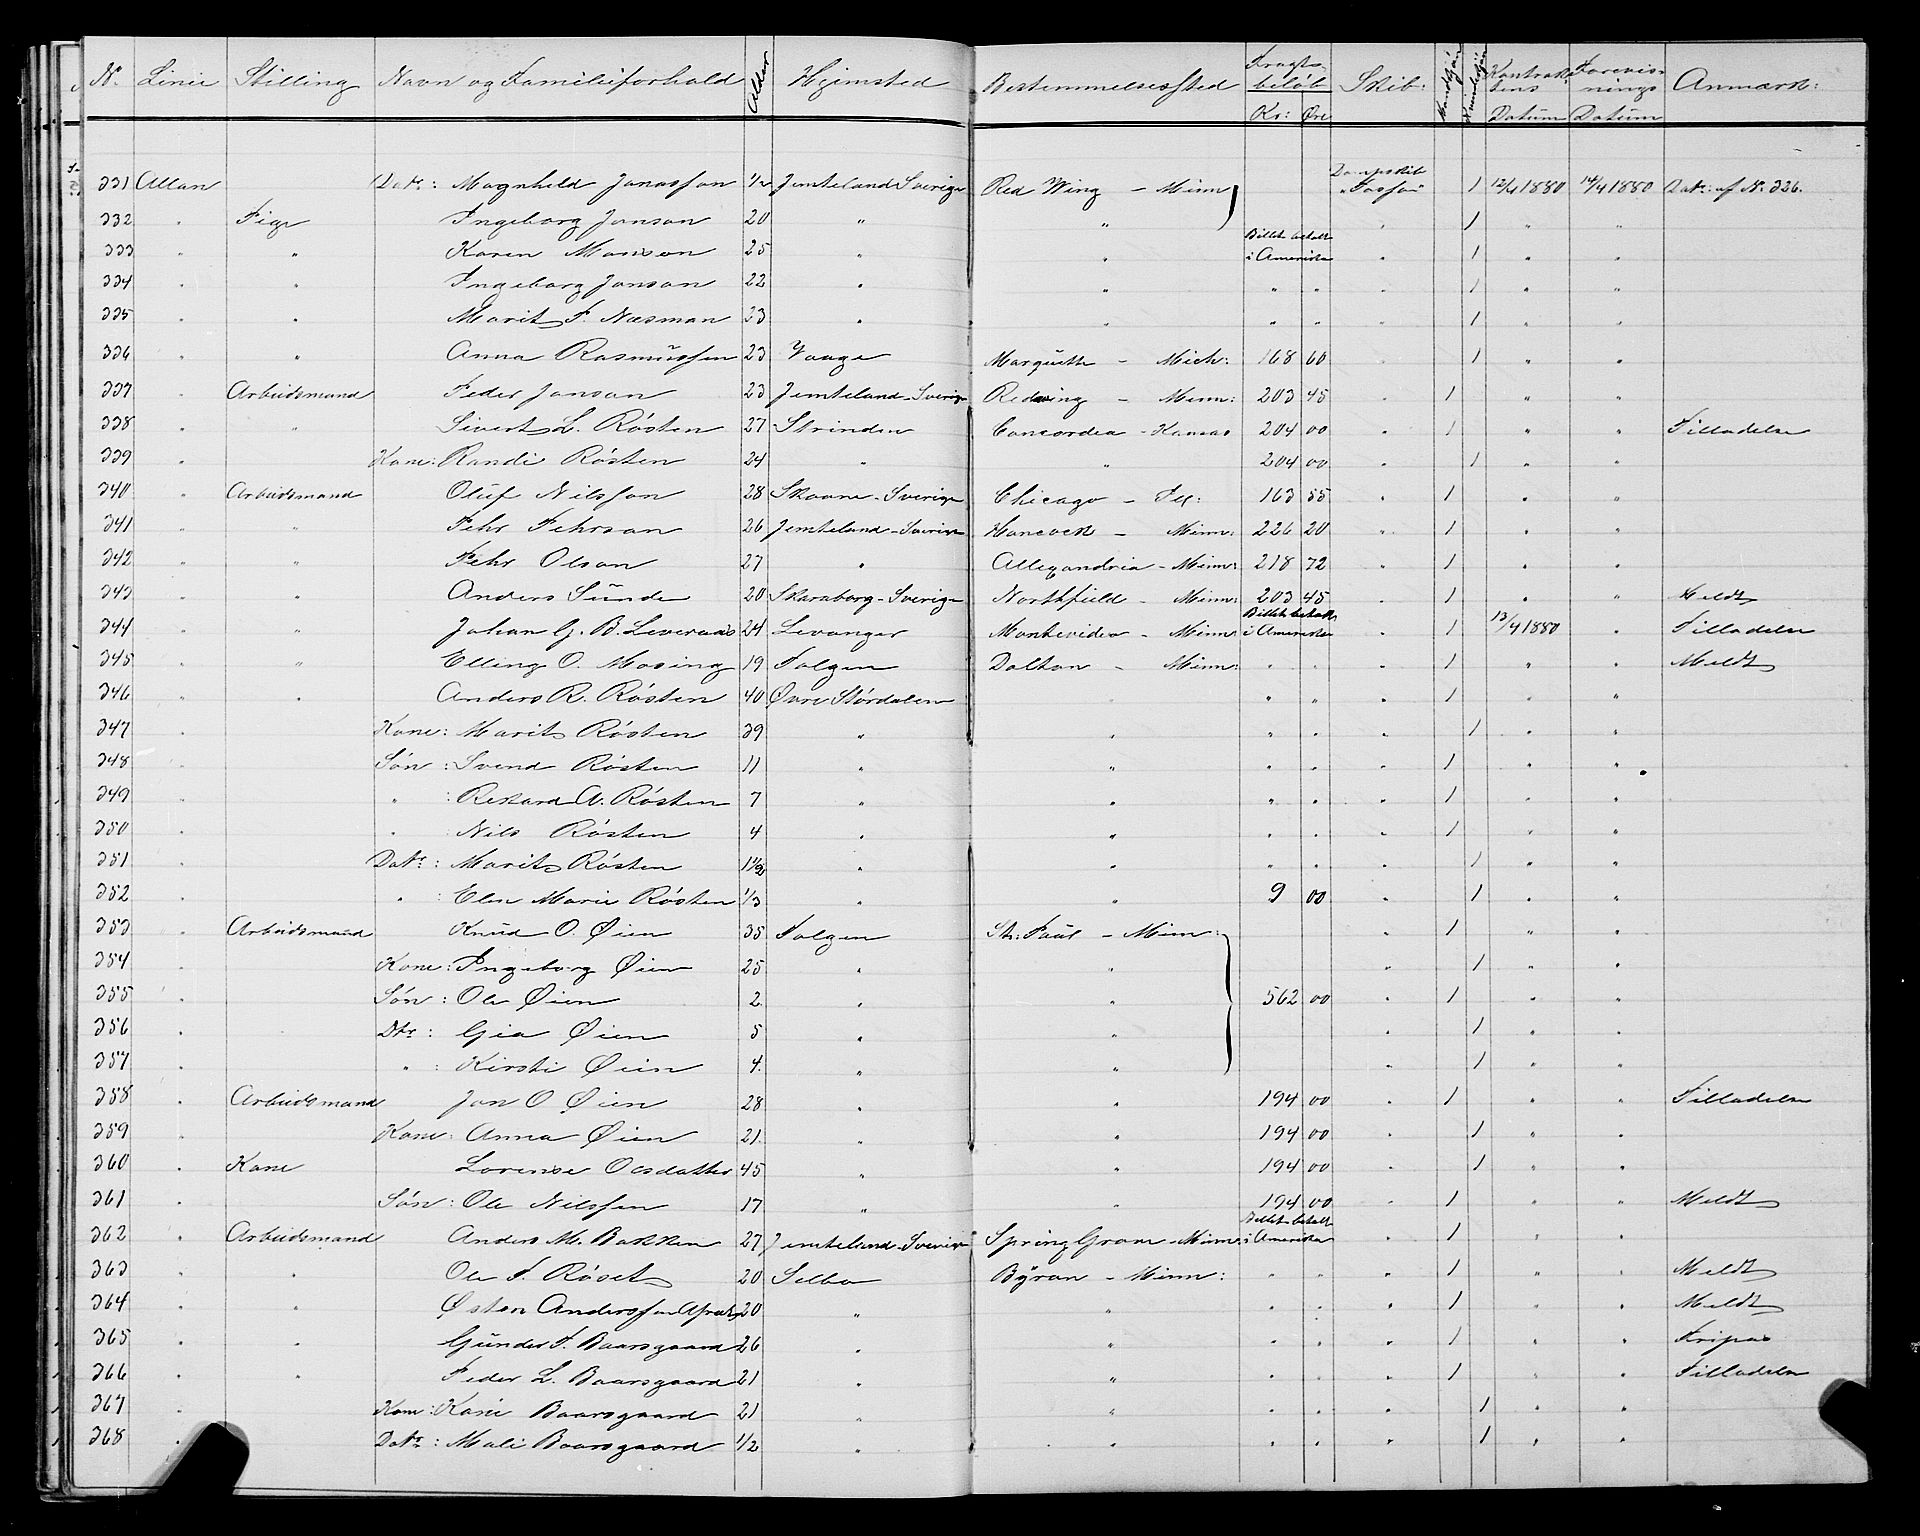 Nr. Linie Stilling Navn og Familieforhold Alder Hjemsted Bestemmelsessted Fragtbeløb Kr: Øre Skib: Mandkjøn Kvindekjøn Kontraktens Datum Forevisnings Datum Anmærk:
331 Allan Datr: Magnhild Jonassen 1/2 Jemteland Sverige Red Wing - Minn Dampskib "Tasso" 1 12/4 1880 14/4 1880 Datr: af No 326.
332 " Pige Ingeborg Jonson 20 " " " 1 " "
333 " " Karen Monson 25 " " Billet betalt i Amerika " 1 " "
334 " " Ingeborg Jonson 22 " " " " " 1 " "
335 " " Marit P. Næsman 23 " " " " " 1 " "
336 " " Anna Rasmussen 23 Vaage Marquette - Mich: 168 60 " 1 " "
337 " Arbeidsmand Peder Jonson 23 Jemteland - Sverige Redwing - Minn: 203 45 " 1 " "
338 " " Sivert L. Røsten 27 Strinden Concordia - Kansas 204 00 " 1 " " Tilladelse
339 " Kone: Randi Røsten 24 " " 204 00 " 1 " "
340 " Arbeidsmand Oluf Nilsson 28 Skaane - Sverige Chicago - Ill: 163 55 " 1 " "
341 " " Pehr Pehrson 26 Jemteland - Sverige Hancock - Minn: 226 20 " 1 " "
342 " " Pehr Olson 27 " Allexandria - Minn: 218 72 " 1 " "
343 " " Anders Sunde 20 Skaraborg - Sverige Northfield - Minn: 203 45 " 1 " " Meldt
344 " " Johan G. B. Leveraas 24 Levanger Montevideo - Minn: Billet betalt i Amerika " 1 13/4 1880 " Tilladelse
345 " " Elling O. Mosing 19 Tolgen Dalton - Minn: " " " 1 " " Meldt
346 " " Anders R. Røsten 40 Øvre Størdalen " " " " 1 " "
347 " Kone: Marit Røsten 39 " " " " " 1 " "
348 " Søn: Svend Røsten 11 " " " " " 1 " "
349 " " : Rikard A. Røsten 7 " " " " " 1 " "
350 " " Nils Røsten 4 " " " " " 1 " "
351 " Datr: Marit Røsten 1 1/2 " " " " " 1 " "
352 " " : Elen Marie Røsten 1/3 " " 9 00 " 1 " "
353 " Arbeidsmand Knud O. Øien 35 Tolgen St: Paul - Minn: " 1 " "
354 " Kone: Ingeborg Øien 25 " " " 1 " "
355 " Søn: Ole Øien 2 " " 562 00 " 1 " "
356 " Dtr: Gia Øien 5 " " " 1 " "
357 " " : Kirsti Øien 4. " " " 1 " "
358 " Arbeidsmand Jon O Øien 28 " " 194 00 " 1 " " Tilladelse
359 " Kone: Anna Øien 21. " " 194 00 " 1 " "
360 " Kone Lorense Olsdatter 45 " " 194 00 " 1 " "
361 " Søn: Ole Nilssen 17 " " 194 00 " 1 " " Meldt
362 " Arbeidsmand Anders M. Bakken 27 Jemteland - Sverige Spring Grove - Minn: Billet betalt i Amerika " 1 " "
363 " " Ole P. Røset 20 Selbo Byron - Minn: " " " 1 " " Meldt
364 " " Østen Anderssen 20 " " " " " 1 " " Meldt
365 " " Gunder P. Baarsgaard 26 " " " " " 1 " " Fripas
366 " " Peder L. Baarsgaard 21 " " " " " 1 " " Tilladelse
367 " Kone: Kari Baarsgaard 21 " " " " " 1 " "
368 " Datr: Mali Baarsgaard 1/2 " " " " " 1 " "